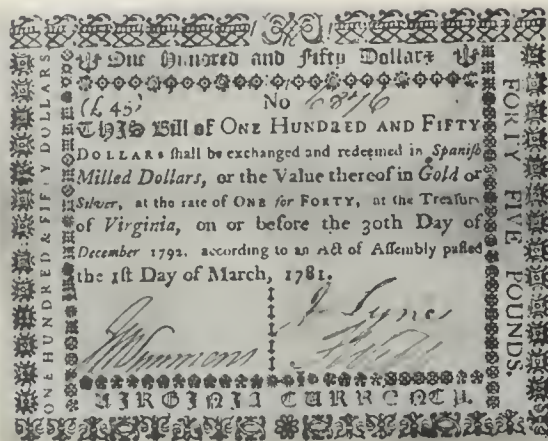 One Hundred and Fifty Dollars
(£ 45) No 6876
THIS Bill of ONE HUNDRED AND FIFTY
DOLLARS ſhall be exchanged and redeemed in Spaniſh
Milled Dollars, or the Value thereof in Gold or
Silver, at the rate of ONE for FORTY, at the Treaſury
of Virginia, on or before the 30th Day of
December 1792, according to an Act of Aſſembly paſſed
the 1ſt Day of March, 1781.
J. Lyne
Simmons
VIRGINIA CURRENCY.
ONE HUNDRED & FIFTY DOLLARS
FORTY FIVE POUNDS.